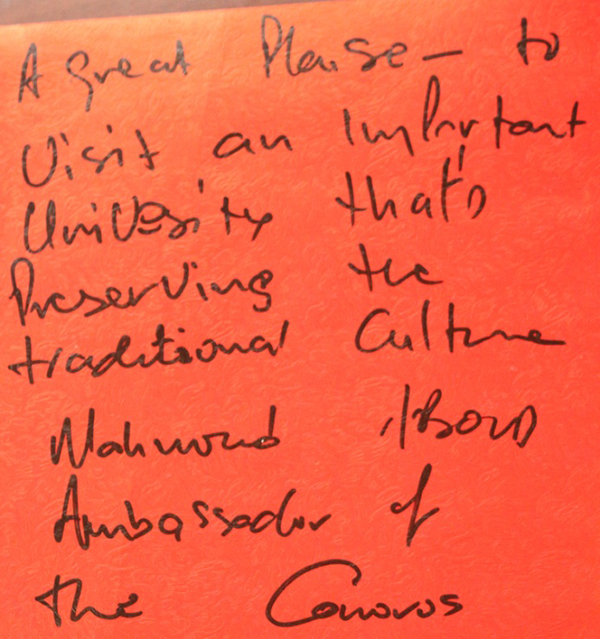 A great Plaise - to
Visit an Important
University that's
Preserving the
traditional Culture
Mahmoud ABOUD
Ambassador of
the Comoros